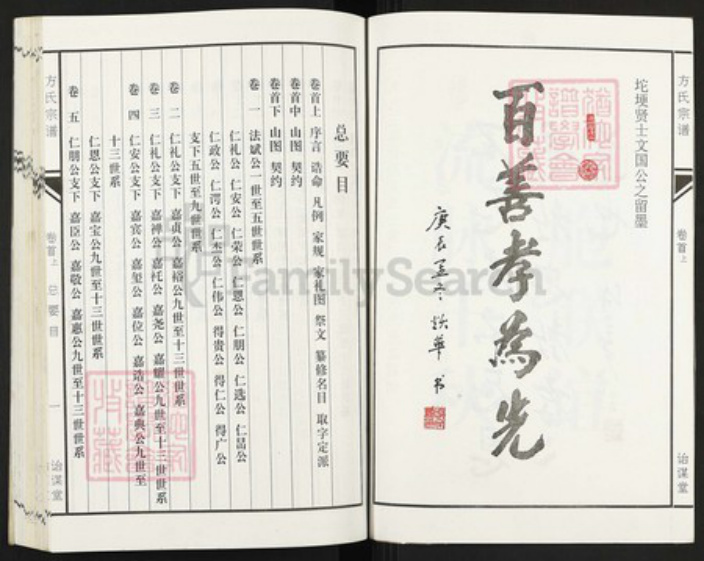 方氏宗谱
卷首上
诒谋堂
坨埂贤士文国公之留墨
百善孝為先
庚辰 書
总要目
卷首上 序言 诰命 凡例 家规 家礼图 祭文 纂修名目 取字定派
卷首中 山图 契约
卷首下 山图 契约
卷一 法斌公一世至五世世系
仁礼公 仁安公 仁荣公 仁恩公 仁朋公 仁选公 仁昷公
仁政公 仁涔公 仁杰公 仁伟公 得贵公 得仁公 得广公
支下五世至九世世系
卷二 仁礼公支下 嘉贞公 嘉裕公九世至十三世世系
卷三 仁礼公支下 嘉禅公 嘉托公 嘉尧公 嘉耀公九世至十三世世系
卷四 仁安公支下 嘉宾公 嘉玺公 嘉位公 嘉诰公 嘉典公九世至
十三世系
仁恩公支下 嘉宝公九世至十三世世系
卷五 仁朋公支下 嘉臣公 嘉敬公 嘉惠公九世至十三世世系
方氏宗谱
卷首上 总要目
一
诒谋堂
FamilySearch